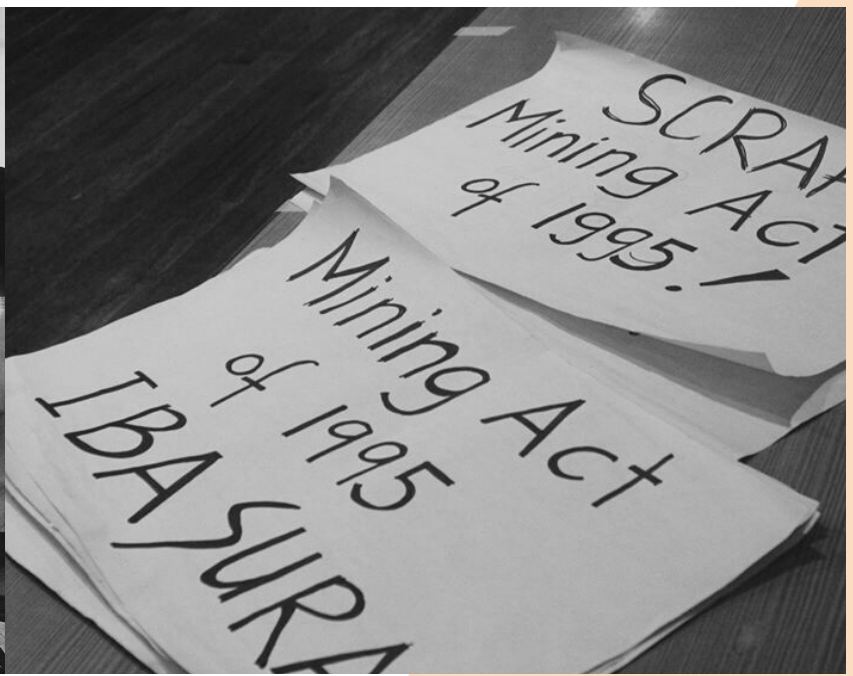 SCRAP
Mining Act
of 1995.!
Mining Act
of 1995
IBASURA